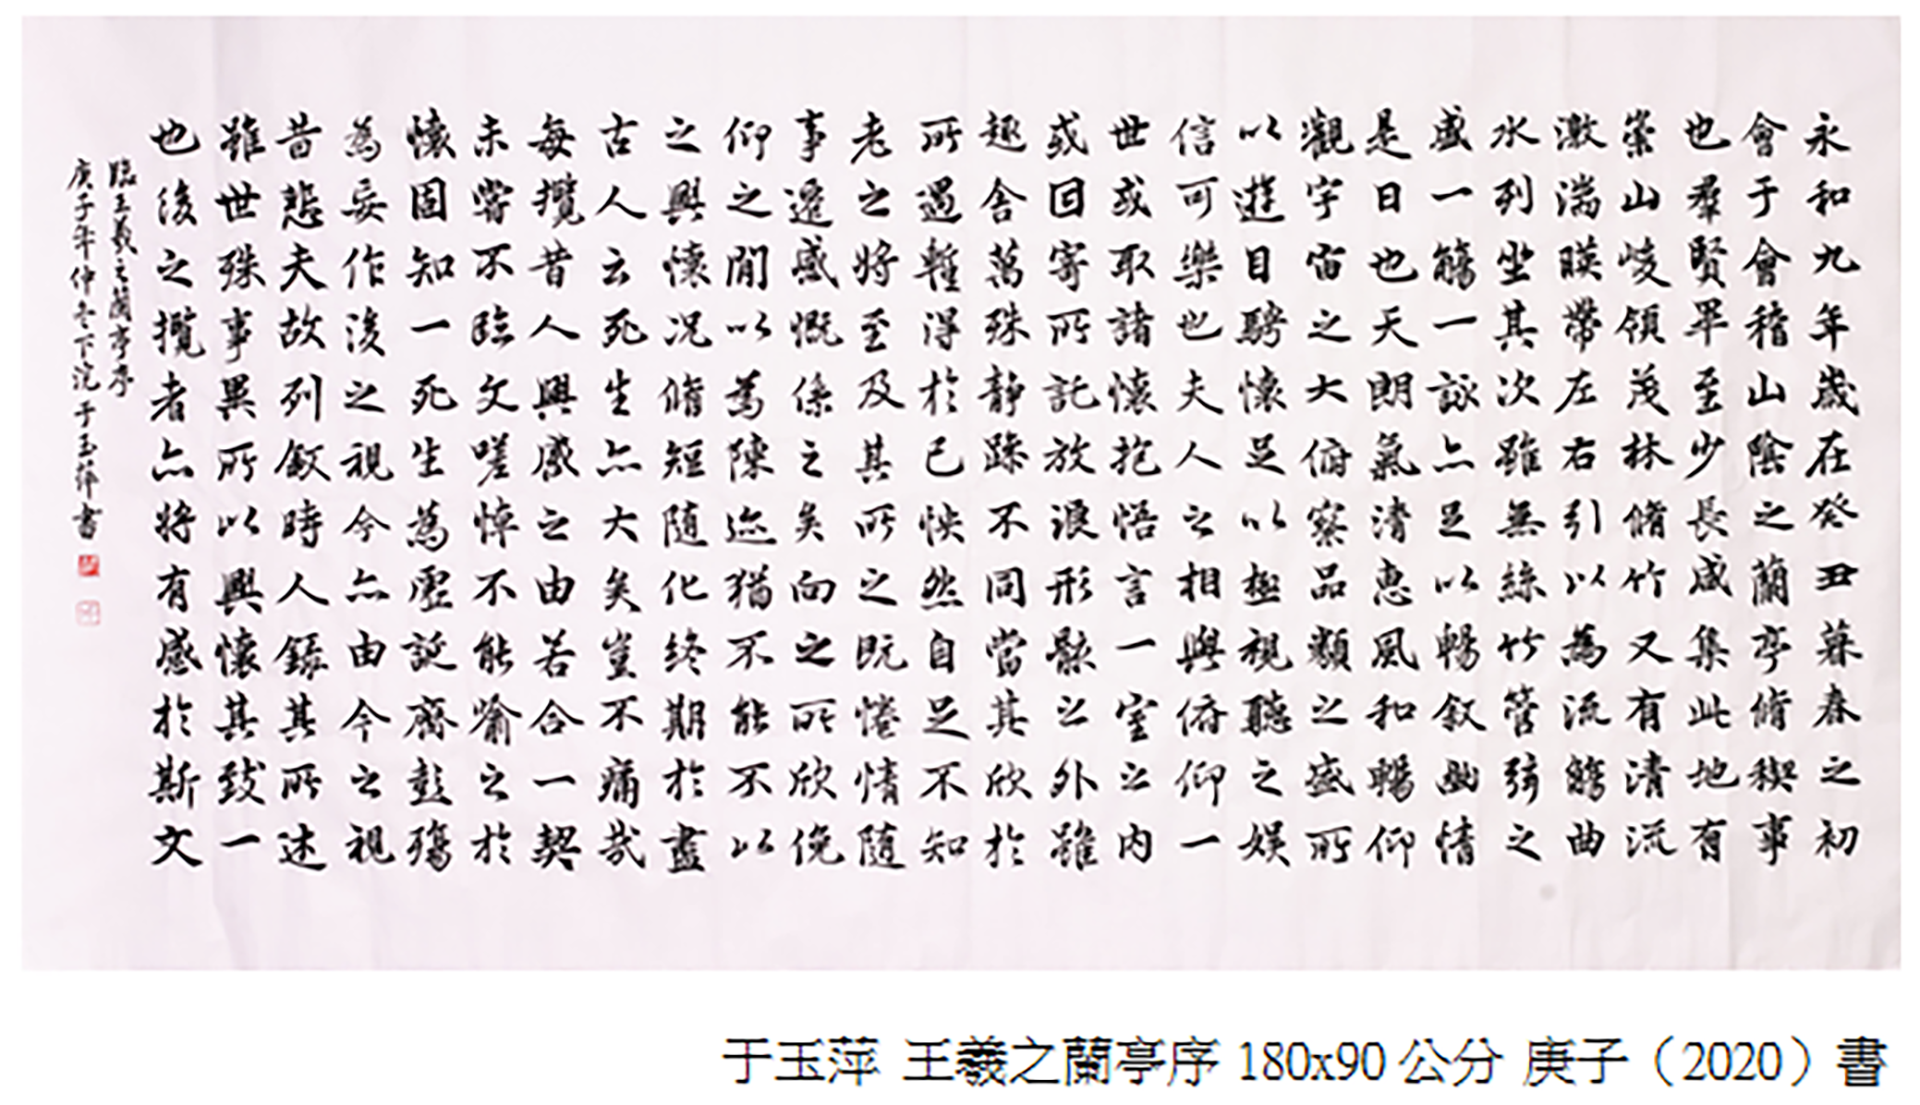 永和九年歲在癸丑暮春之初
會于會稽山陰之蘭亭脩稧事
也羣賢畢至少長咸集此地有
崇山峻領茂林脩竹又有清流
激湍暎帶左右引以為流觴曲
水列坐其次雖無絲竹管弦之
盛一觴一詠亦足以暢敘幽情
是日也天朗氣清惠風和暢仰
觀宇宙之大俯察品類之盛所
以遊目騁懷足以極視聽之娛
信可樂也夫人之相與俯仰一
世或取諸懷抱悟言一室之內
或因寄所託放浪形骸之外雖
趣舍萬殊靜躁不同當其欣於
所遇暫得於己怏然自足不知
老之將至及其所之既惓情隨
事遷感慨係之矣向之所欣俛
仰之閒以為陳迹猶不能不以
之興懷況脩短隨化終期於盡
古人云死生亦大矣豈不痛哉
每攬昔人興感之由若合一契
未嘗不臨文嗟悼不能喻之於
懷固知一死生為虛誕齊彭殤
為妄作後之視今亦由今之視
昔悲夫故列敘時人錄其所述
雖世殊事異所以興懷其致一
也後之攬者亦將有感於斯文
臨王羲之蘭亭序
庚子年仲冬下浣于玉萍書
于玉萍 王羲之蘭亭序 180x90 公分 庚子（2020）書